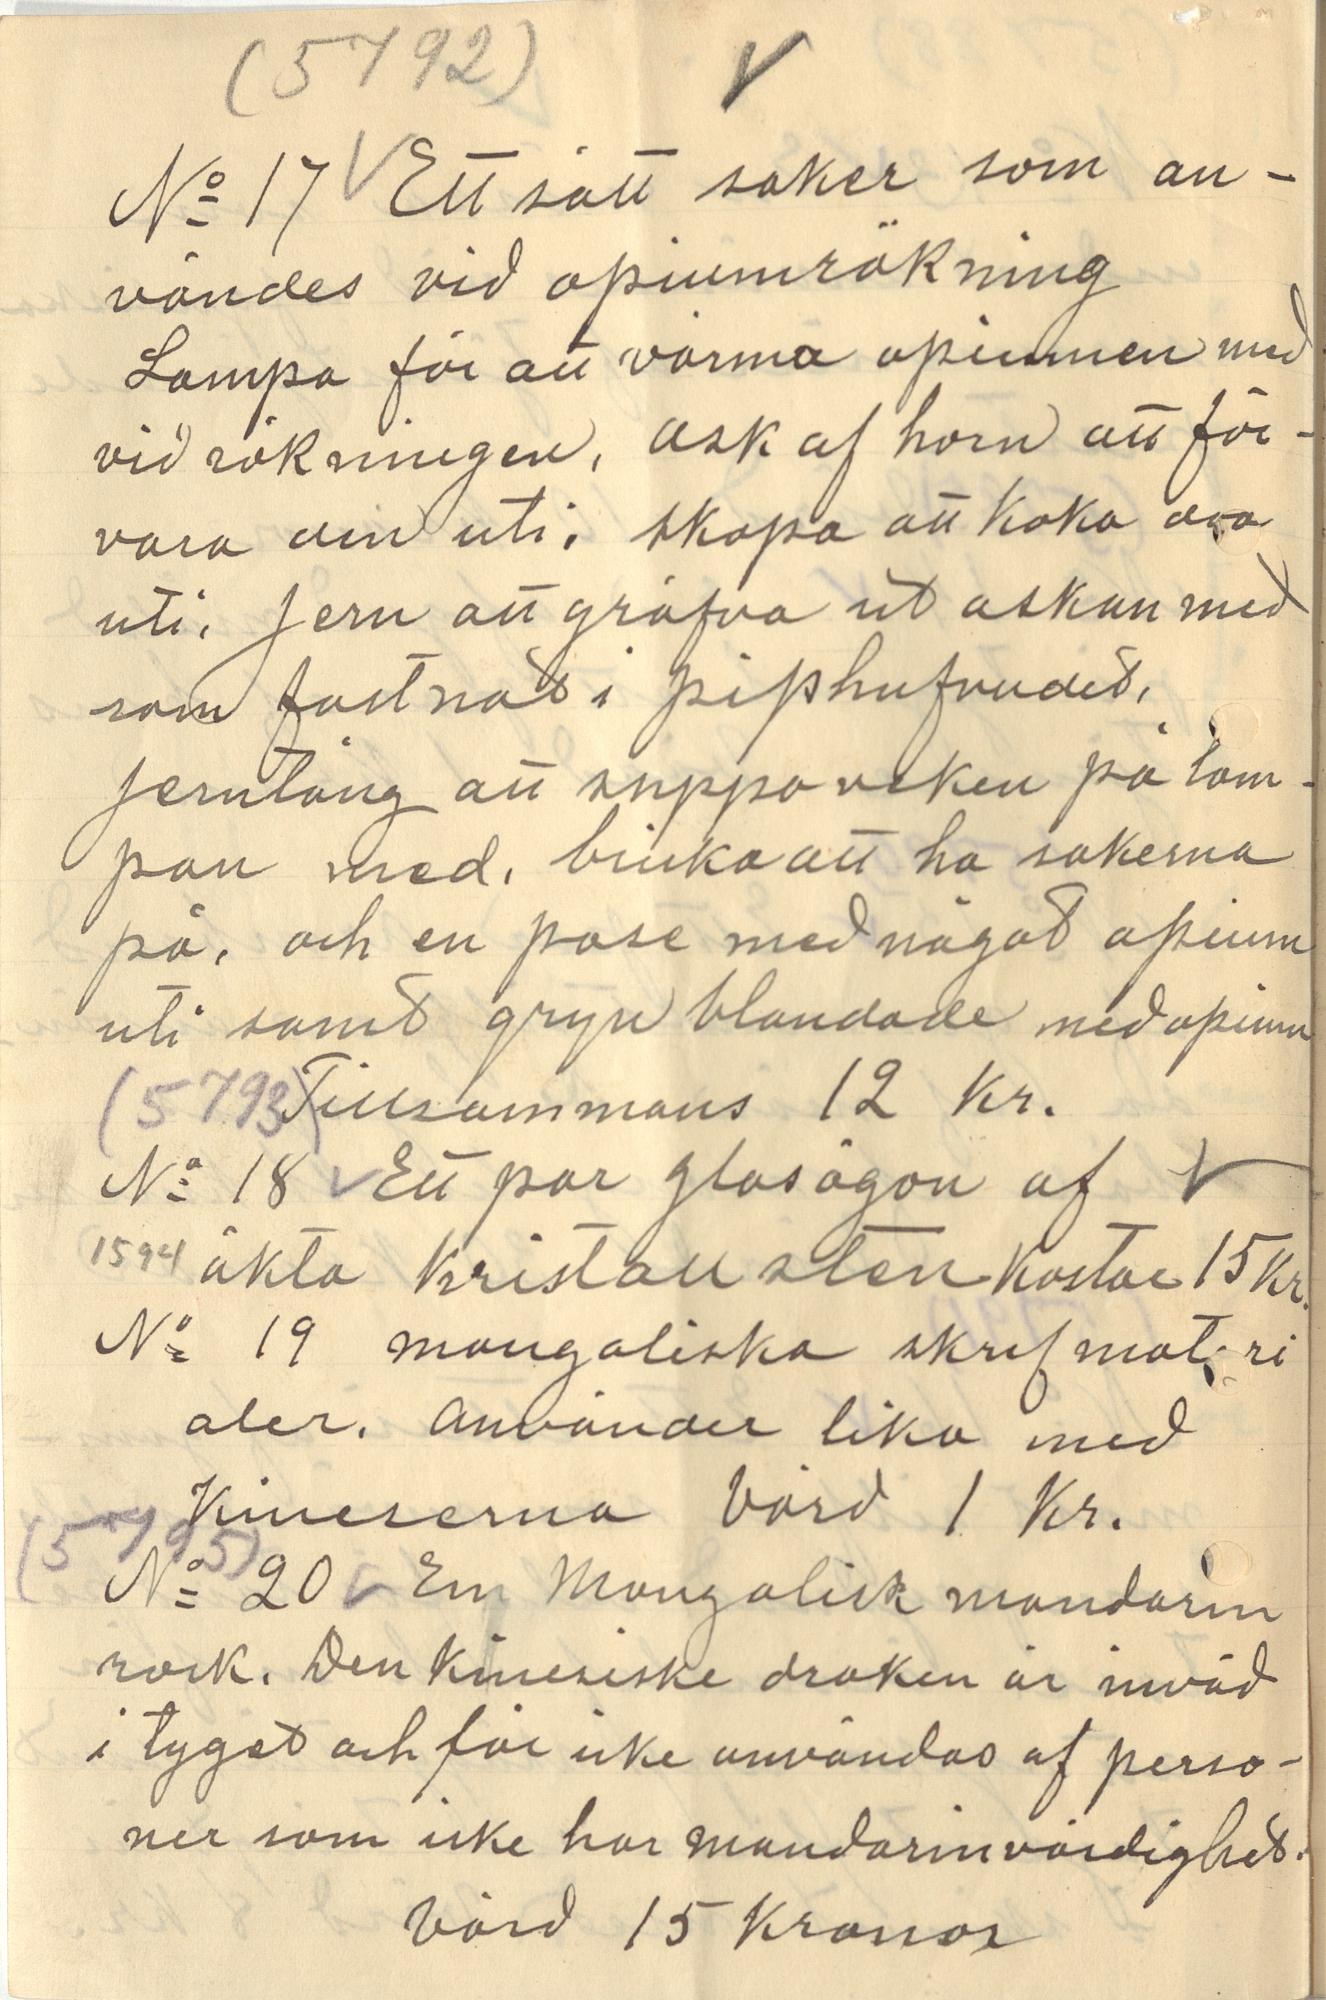 (5792) V
No 17 V Ett sätt saker som an-
vändes vid opiumrökning
Lampa för att värma opiumen med
vid rökningen, ask af horn att för-
vara den uti, skopa att koka den
uti, jern att gräfva ut askan med
som fastnat i piphufvudet,
jerntång att snppa veken på lam-
pan med, bricka att ha sakerna
på, och en påse med något opium
uti samt gryn blandade med opium
(5793) Tillsammans 12 Kr.
No 18 V Ett par glasögon af V
1594 äkta Kristall sten kostar 15 Kr.
No 19 mongoliska skrifmateri
aler. Använder lika med
Kineserna Värd 1 Kr.
(5795)
No 20 V En Mongolisk mandarin
rock. Den Kinesiske draken är inväd
i tyget och får icke användas af perso-
ner som icke har mandarinvärdighet.
Värd 15 Kronor